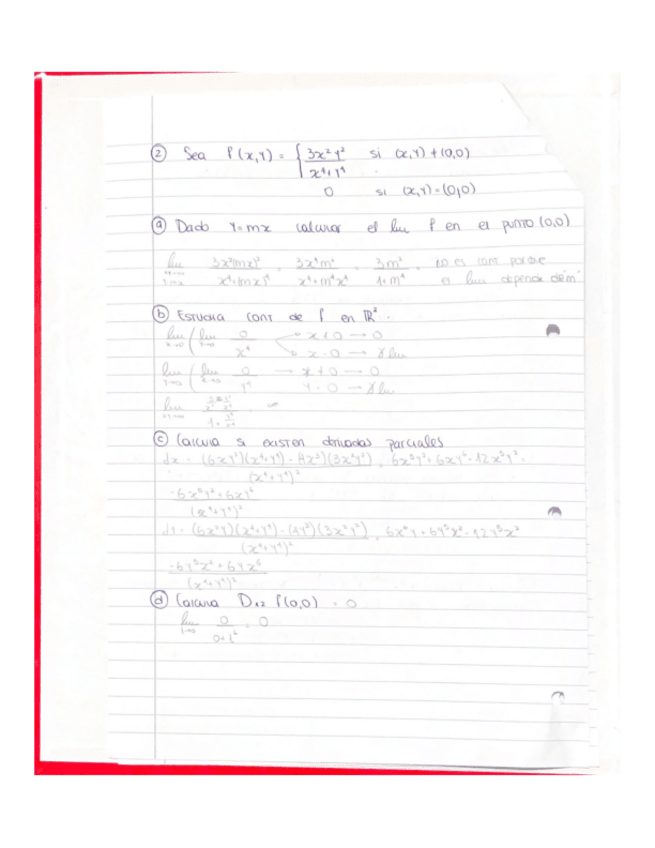 ② Sea f(x,y) = { 3x²y² / x⁴+y⁴ si (x,y)≠(0,0)
0 si (x,y)=(0,0)
ⓐ Dado y=mx calcular el lim f en el punto (0,0)
lim 3x²(mx)² / x⁴+(mx)⁴ = 3x⁴m² / x⁴+m⁴x⁴ = 3m² / 1+m⁴ = no es cont porque
el lim depende de "m"
ⓑ Estudia cont de f en ℝ².
lim x→0 ( lim y→0 0 / x⁴ x≠0 → 0
x=0 → ∄ lim
lim y→0 ( lim x→0 0 / y⁴ → x≠0 → 0
y=0 → ∄ lim
lim
ⓒ Calcula si existen derivadas parciales
dx = (6xy²)(x⁴+y⁴) - (4x³)(3x²y²) / (x⁴+y⁴)² = 6x⁵y²+6xy⁶-12x⁵y² =
-6x⁵y²+6xy⁶ / (x⁴+y⁴)²
dy = (6x²y)(x⁴+y⁴) - (4y³)(3x²y²) / (x⁴+y⁴)² = 6x⁶y+6y⁵x²-12y⁵x²
-6y⁵x²+6yx⁶ / (x⁴+y⁴)²
ⓓ Calcula D₁,₂ f(0,0) = 0
lim 0 / 0+t² = 0